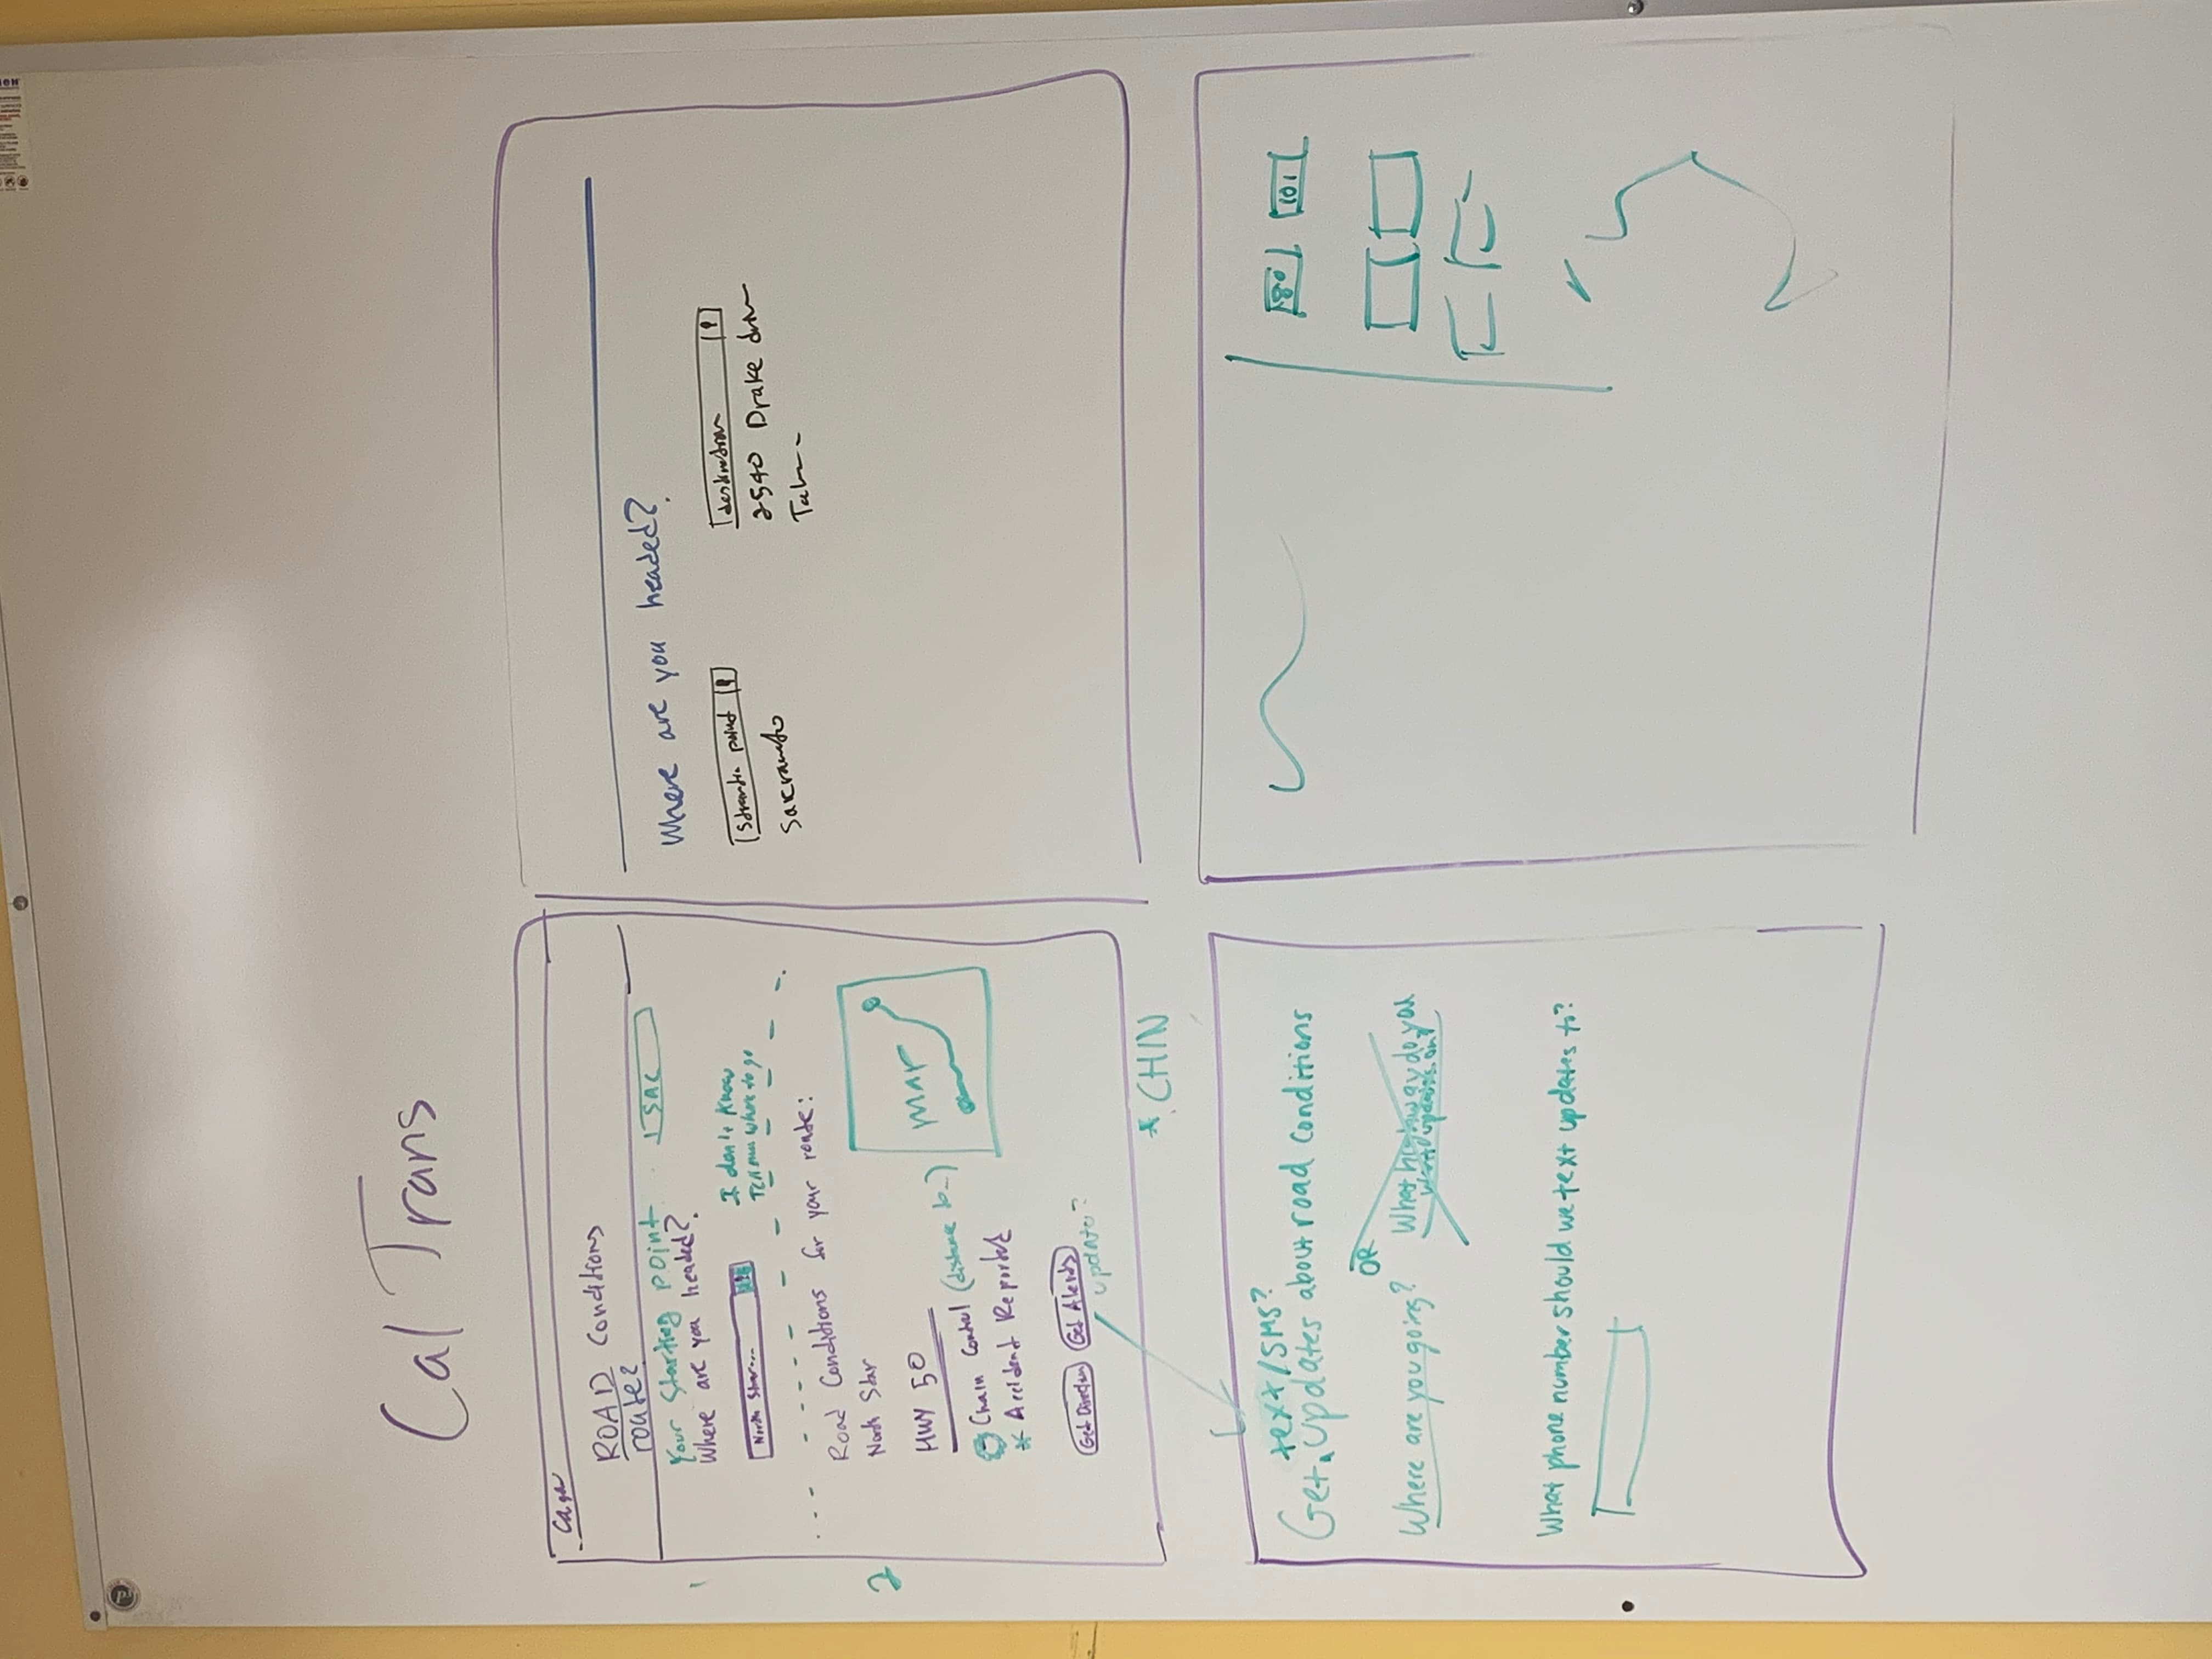 Cal Trans
ca.gov
ROAD Conditions
route?
Your Starting point
SAC
Where are you headed?
North Star...
I don't know
Tell me where to go
Road Conditions for your route:
North Star
HWY 50
Chain Control (distance to_)
* Accident Reported
MAP
Get Direction
Get Alerts
updates?
1
2
* CHIN
Where are you headed?
destination
2540 Drake
Sacramento
text/SMS?
Get updates about road conditions
Where are you going?
OR
What highway do you
want updates on?
What phone number should we text updates to?
80
101